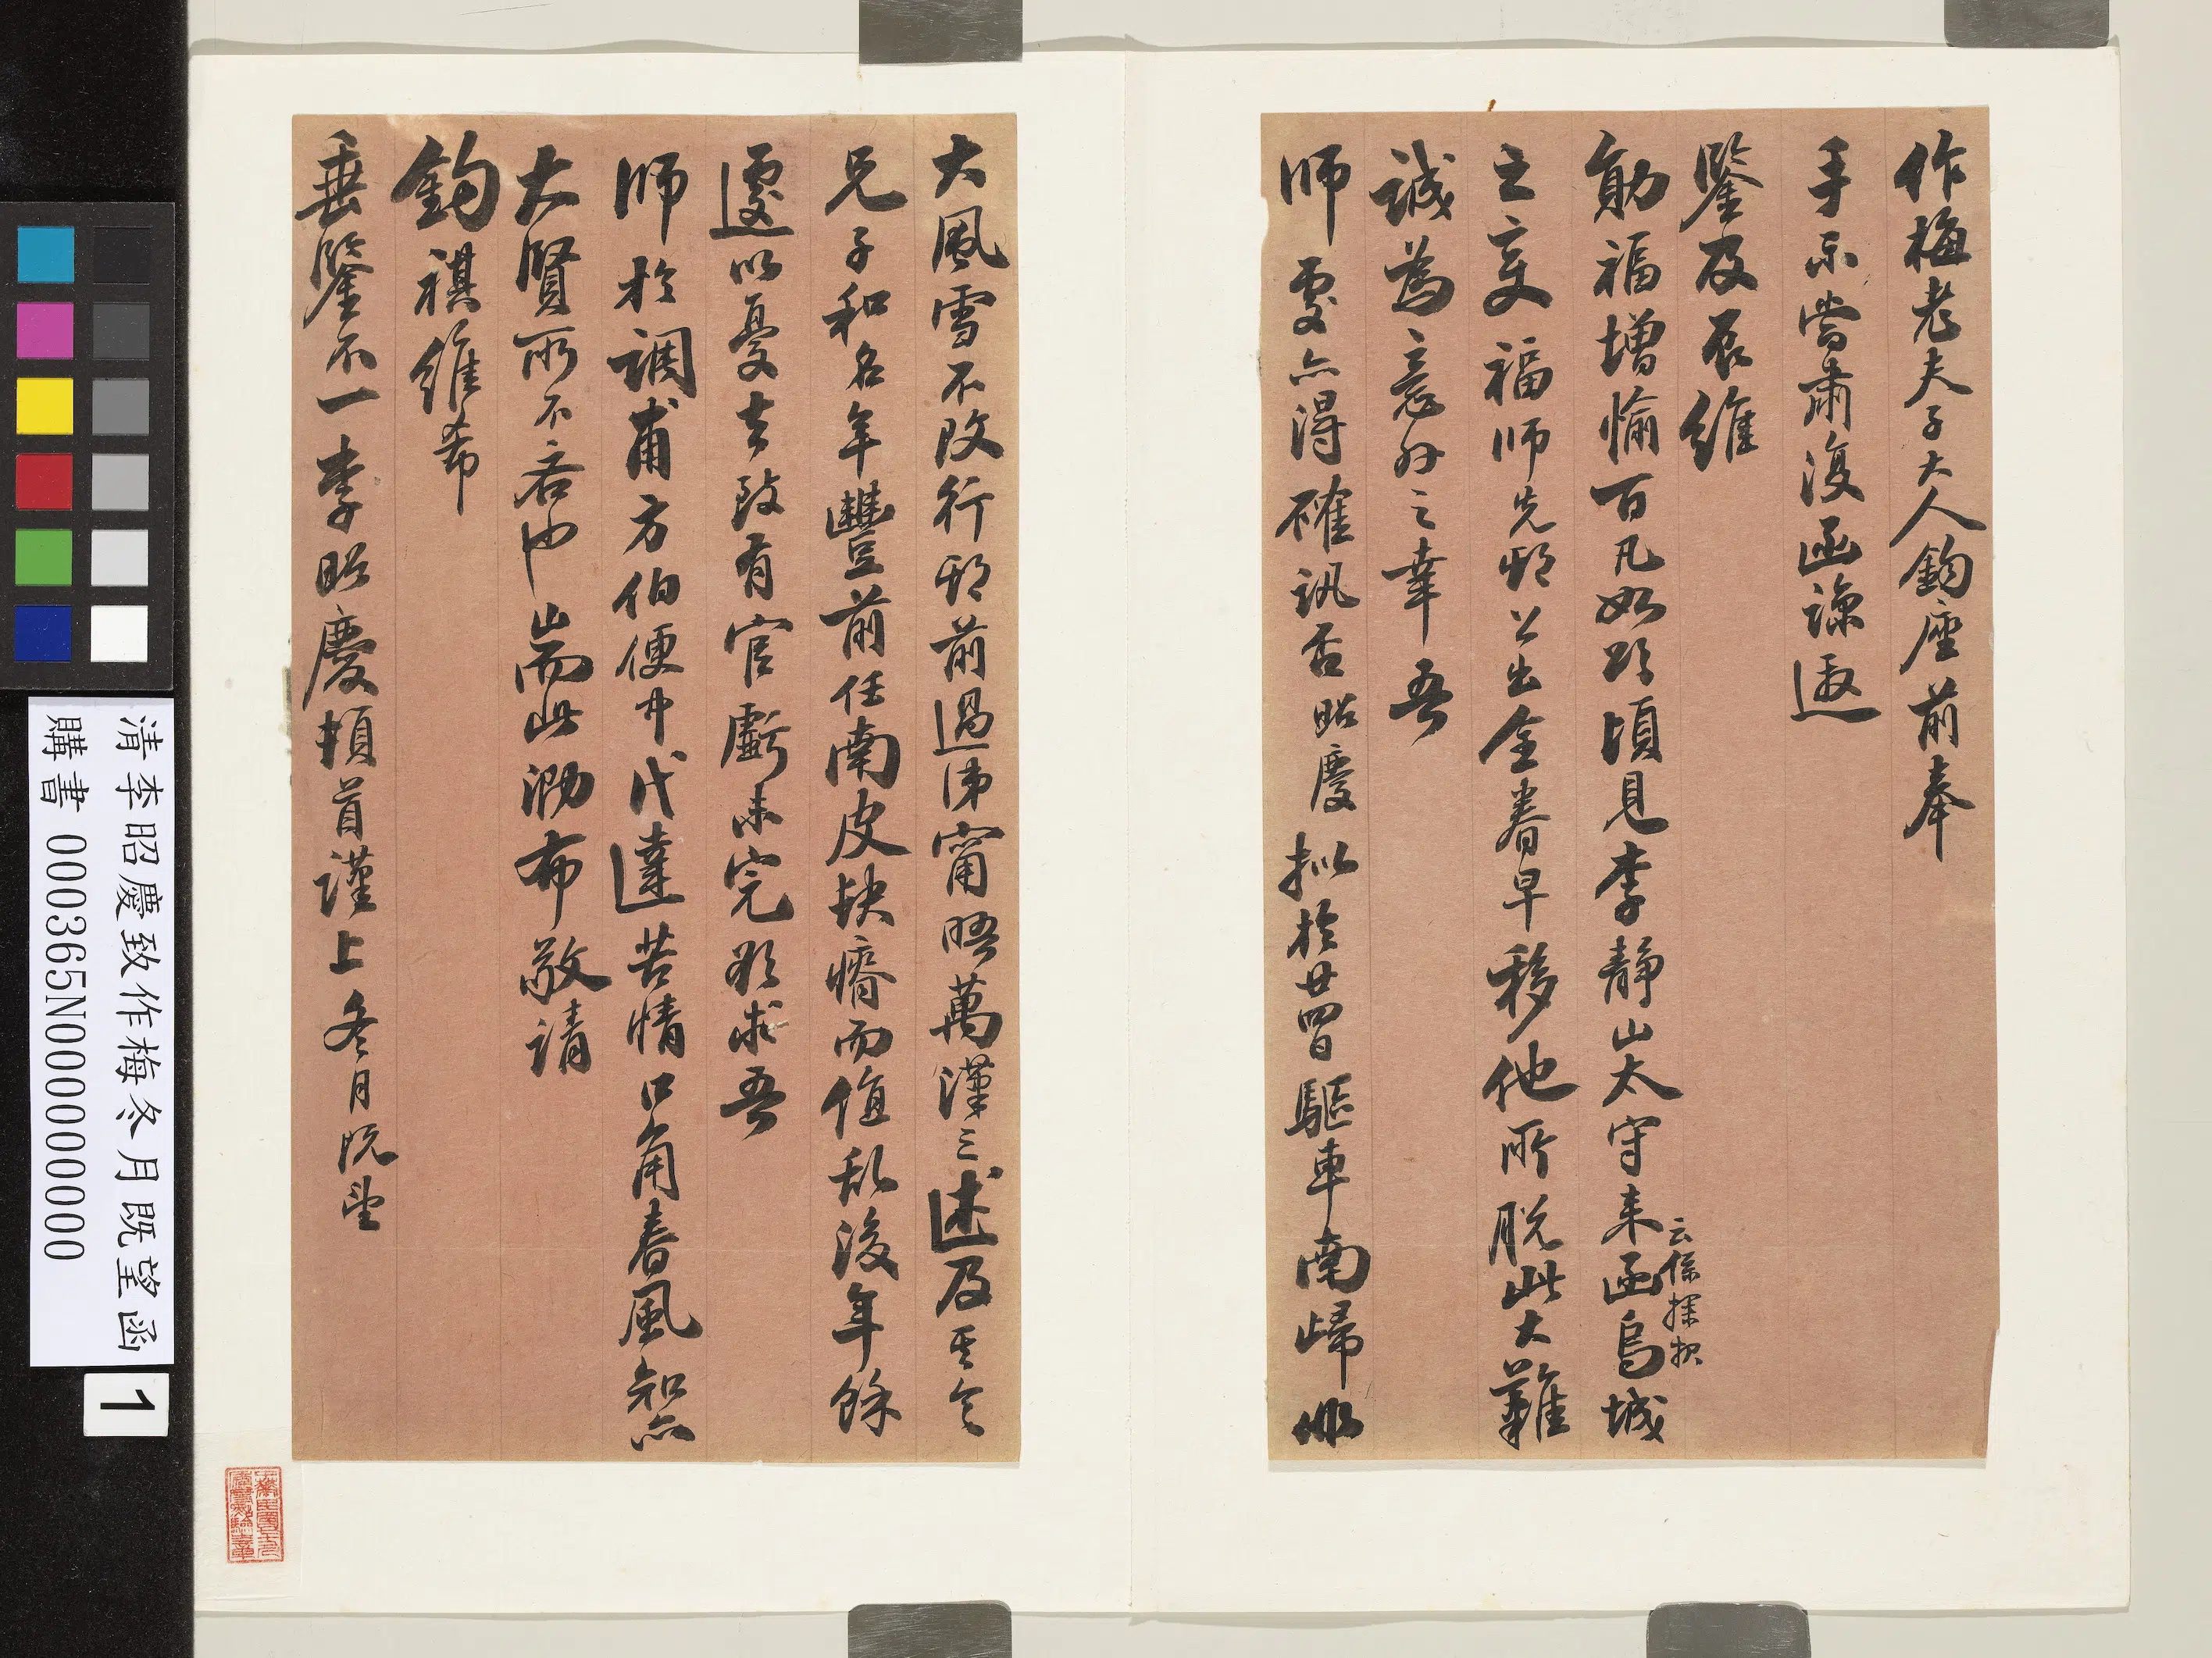 作梅老夫子大人鈞座前奉
手示嘗肅復函諒邀
鑒及辰維
勛福增愉百凡如頌頃見李靜山太守来函烏城
云係探报
之变福師先期公出全眷早移他所脱此大難
誠為意外之幸吾
師處亦得確訊否昭慶拟於廿四日驅車南歸非
大風雪不改行期前過沛甯晤萬漢三述及其令
兄子和名年豐前任南皮缺瘠而值乱後年餘
遽以憂去致有官虧未完欲求吾
師於調甫方伯便中代達苦情口角春風知亦
大賢所不吝也耑此泐布敬請
鈞祺維希
垂鑒不一李昭慶頓首謹上冬月既望
清李昭慶致作梅冬月既望函
購書 000365N000000000
1